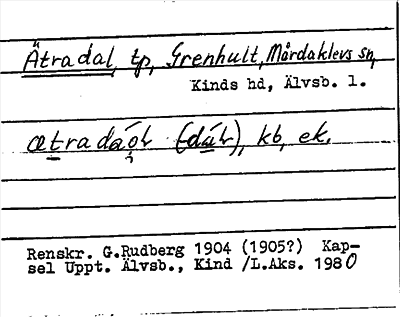 Ätradal, tp, Grenhult, Mårdaklevs sn,
Kinds hd, Älvsb. l.
ætradáǫƚ (dáƚ), kb, ek.
Renskr. G.Rudberg 1904 (1905?) Kap-
sel Uppt. Älvsb., Kind /L.Aks. 1980